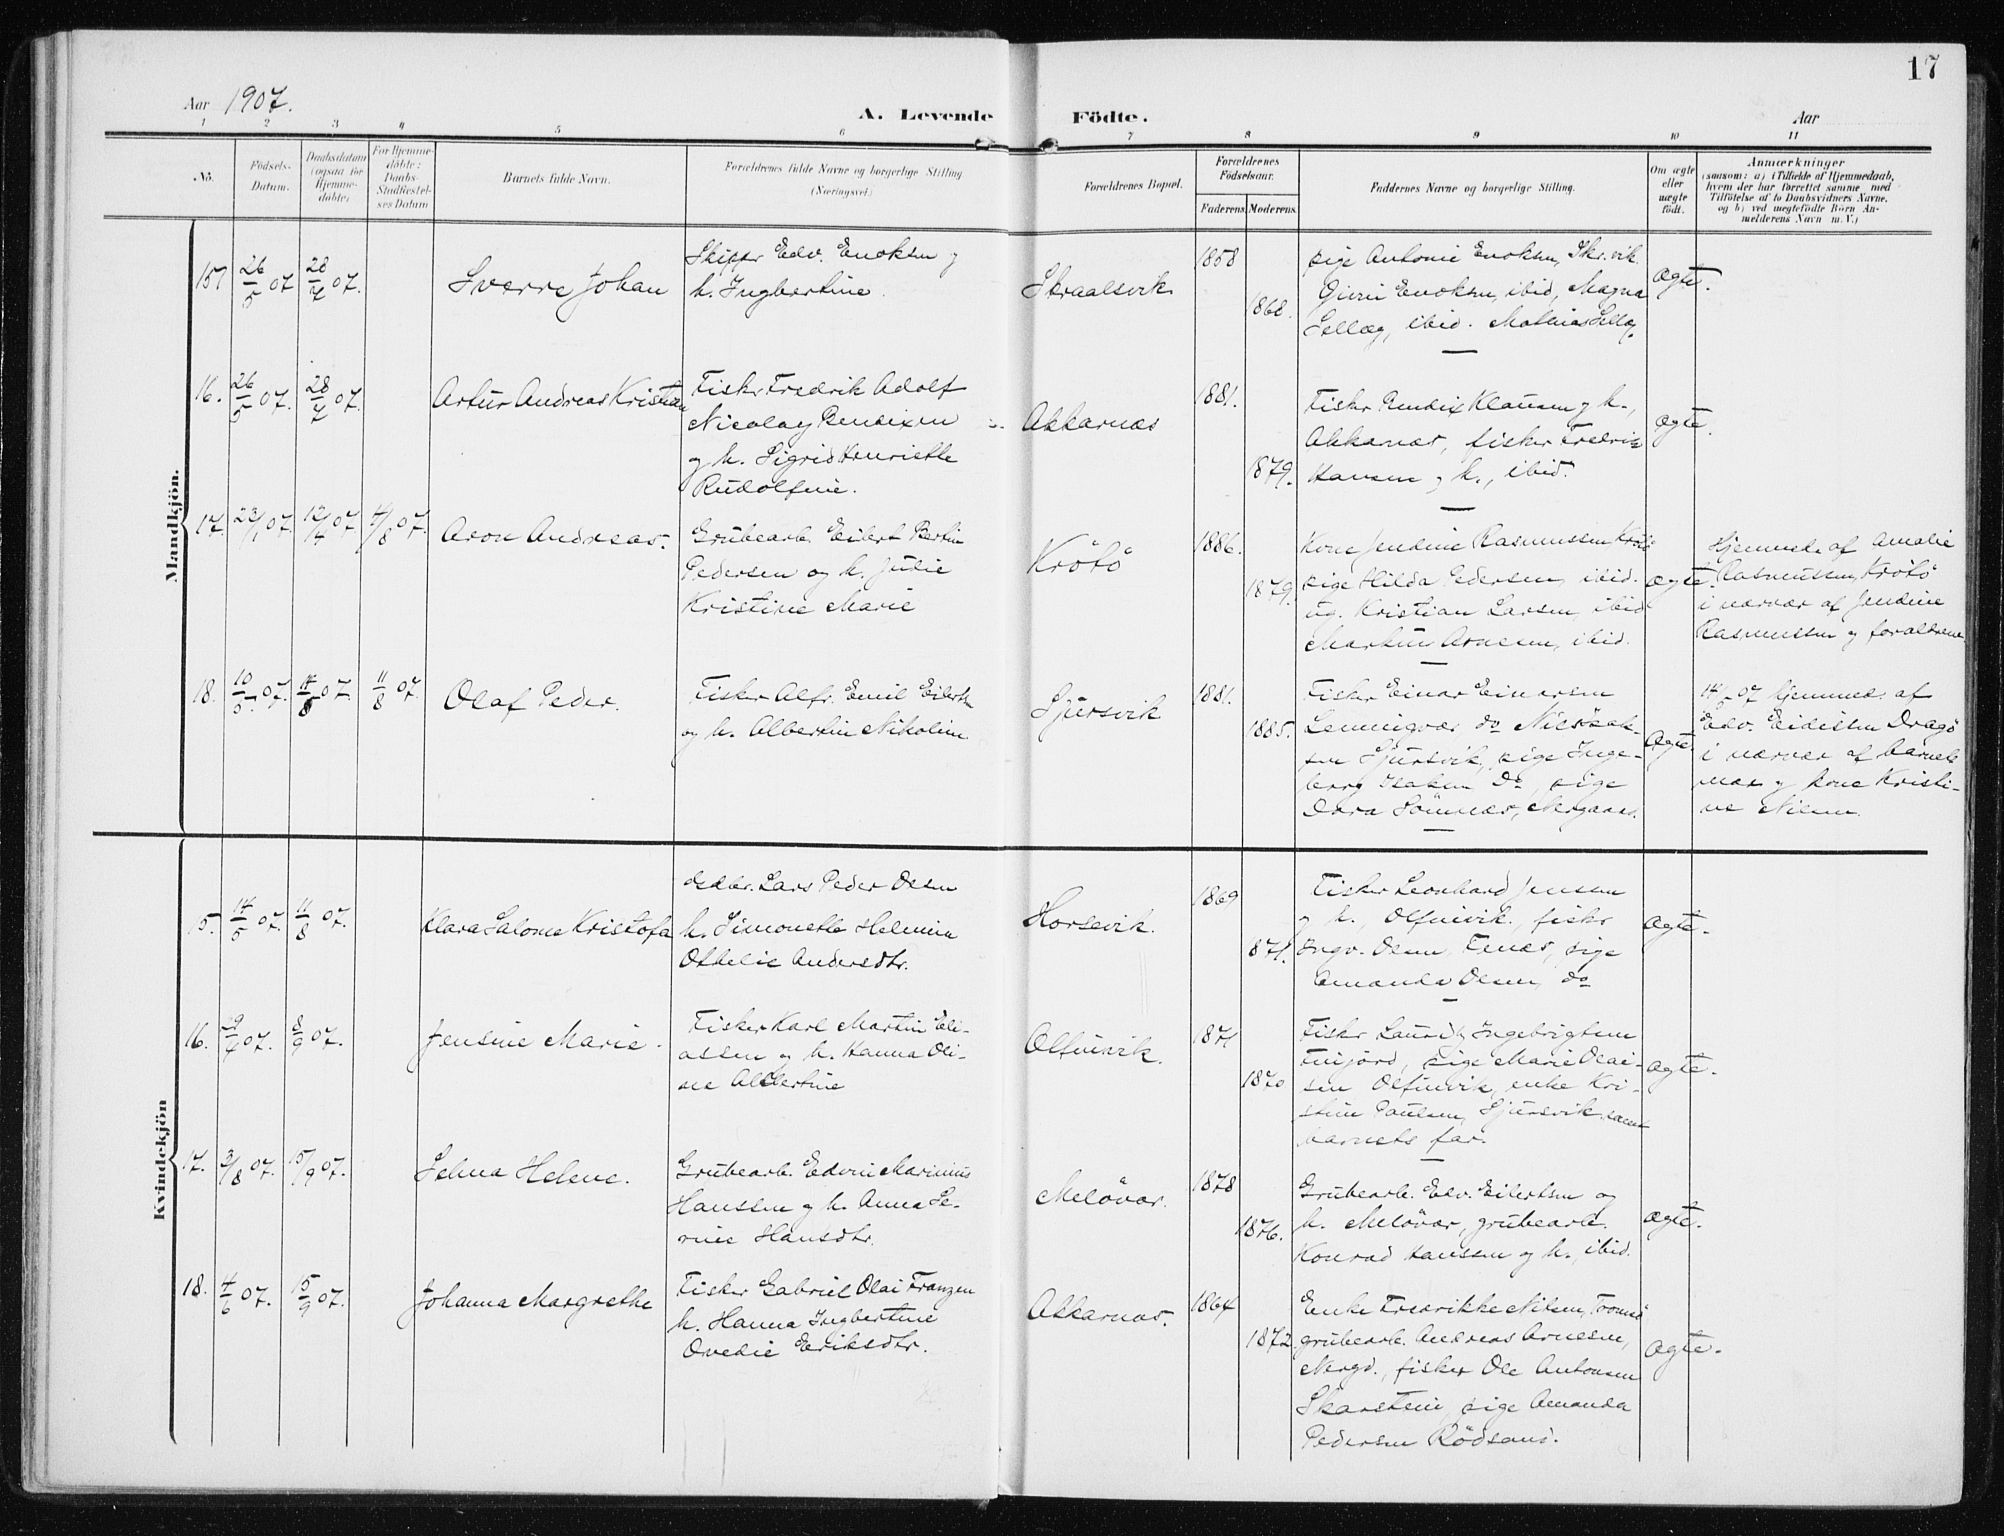 17
Aar 1907.
A. Levende Födte.
Aar
1 2 3 4 5 6 7 8 9 10 11
No.
Födsels-
Datum.
Daabsdatum
(ogsaa for
Hjemme-
døbte)
For Hjemme-
døbte:
Daabs-
Stadfæstel-
ses Datum
Barnets fulde Navn.
Forældrenes fulde Navne og borgerlige Stilling
(Næringsvei)
Forældrenes Bopæl.
Forældrenes
Födselsaar.
Faderens. Moderens.
Faddernes Navne og borgerlige Stilling.
Om ægte
eller
uægte
födt.
Anmærkninger
(saasom: a) i Tilfælde af Hjemmedaab,
hvem der har forrettet samme med
Tilföielse af to Daabsvidners Navne.
og b) ved uægtefödte Börn An-
melderens Navn m. V.)
Mandkjön.
15 26/5 07 28/7 07.
Sverre Johan
Skippr Edv. Enoksen og
h. Ingbertine.
Skraalsvik
1858
1868.
pige Antonie Enoksen, Skr.vik
Enoksen, ibid, Magna
Sellæg, ibid. Mathias Sellæg.
Ægte.
16. 26/5 07. 28/7 07.
Artur Andreas Kristian
Fisker Fredrik Adolf
Nicolay Bendixen
og h. Sigrid Henriette
Rudolfine.
Akkarnæs
1881.
1879.
Fisker Bendix Klausen og h.,
Akkarnæs, fisker Fredrik
Hansen og h., ibid.
Ægte.
17. 23/1 07. 12/4 07 4/8 07.
Aron Andreas.
Grubearb. Eilert Bertin
Pedersen og h. Julie
Kristine Marie
Krötö
1886.
1879.
Kone Jendine Rasmussen Krötö
pige Hilda Pedersen, ibid.
ug. Kristian Larsen, ibid
Martin Arnesen, ibid.
Ægte.
Hjemmed. af Amalie
Rasmussen, Krötö
i nærvær af Jendine
Rasmussen og forældrene.
18. 10/5 07. 14/ 07. 11/8 07.
Olaf Peder.
Fisker Alfr. Emil Eilerts.
og h. Albertin Nikolin
Sjursvik
1881.
1885.
Fisker Einar Einarsen
Lemmigvær do Nils Isak-
sen Sjursvik, pige Inge-
borg Isaksen Do, pige
Dora Sömnæs, Mefgaard.
Ægte.
14/ 07 hjemmed. af
Edv. Eidissen Dragö
i nærvær af barnets
mor og kone Kristi-
ne Nilsen.
Kvindekjön
15. 14/5 07. 11/8 07.
Klara Salome Kristofa
Lars Peder Olsen
h. Simonette Helmine
Othelie Andersdtr.
Horsevik.
1869
1871.
Fisker Leonhard Jensen
og h. Olfinvik, fisker
Ingv. Olsen, Fenæs, pige
Amanda Olsen, do
Ægte.
16. 29/7 07. 8/9 07.
Jensine Marie.
Fisker Karl Martin Eli-
assen og h. Hanna Oli-
ne Albertine
Olfinvik.
1871
1870
Fisker Laurits Ingebrigtsen
Finjord, pige Marie Olai-
sen Olfinvik, enke Kri-
stine Paulsen, Sjursvik, samt
barnets far.
Ægte.
17. 3/8 07. 15/9 07.
Selma Helene.
Grubearb. Edvin Marinius
Hanssen og h. Anna Se-
rine Hansdtr.
Melövær.
1878
1876.
Grubearb. Edv. Eilertsen og
h. Melövær, grubearb.
Konrad Hanssen og h., ibid.
Ægte.
18. 4/6 07. 15/9 07.
Johanna Margrethe
Fisker Gabriel Olai Franzen
h. Hanna Ingbertine
Ovedie Eriksdtr.
Akkarnæs.
1864
1872.
Enke Fredrikke Nilsen, Tromsö
grubearb. Andreas Arnesen,
fisker Ole Antonsen
Skarstein, pige Amanda
Pedersen Rödsand.
Ægte.